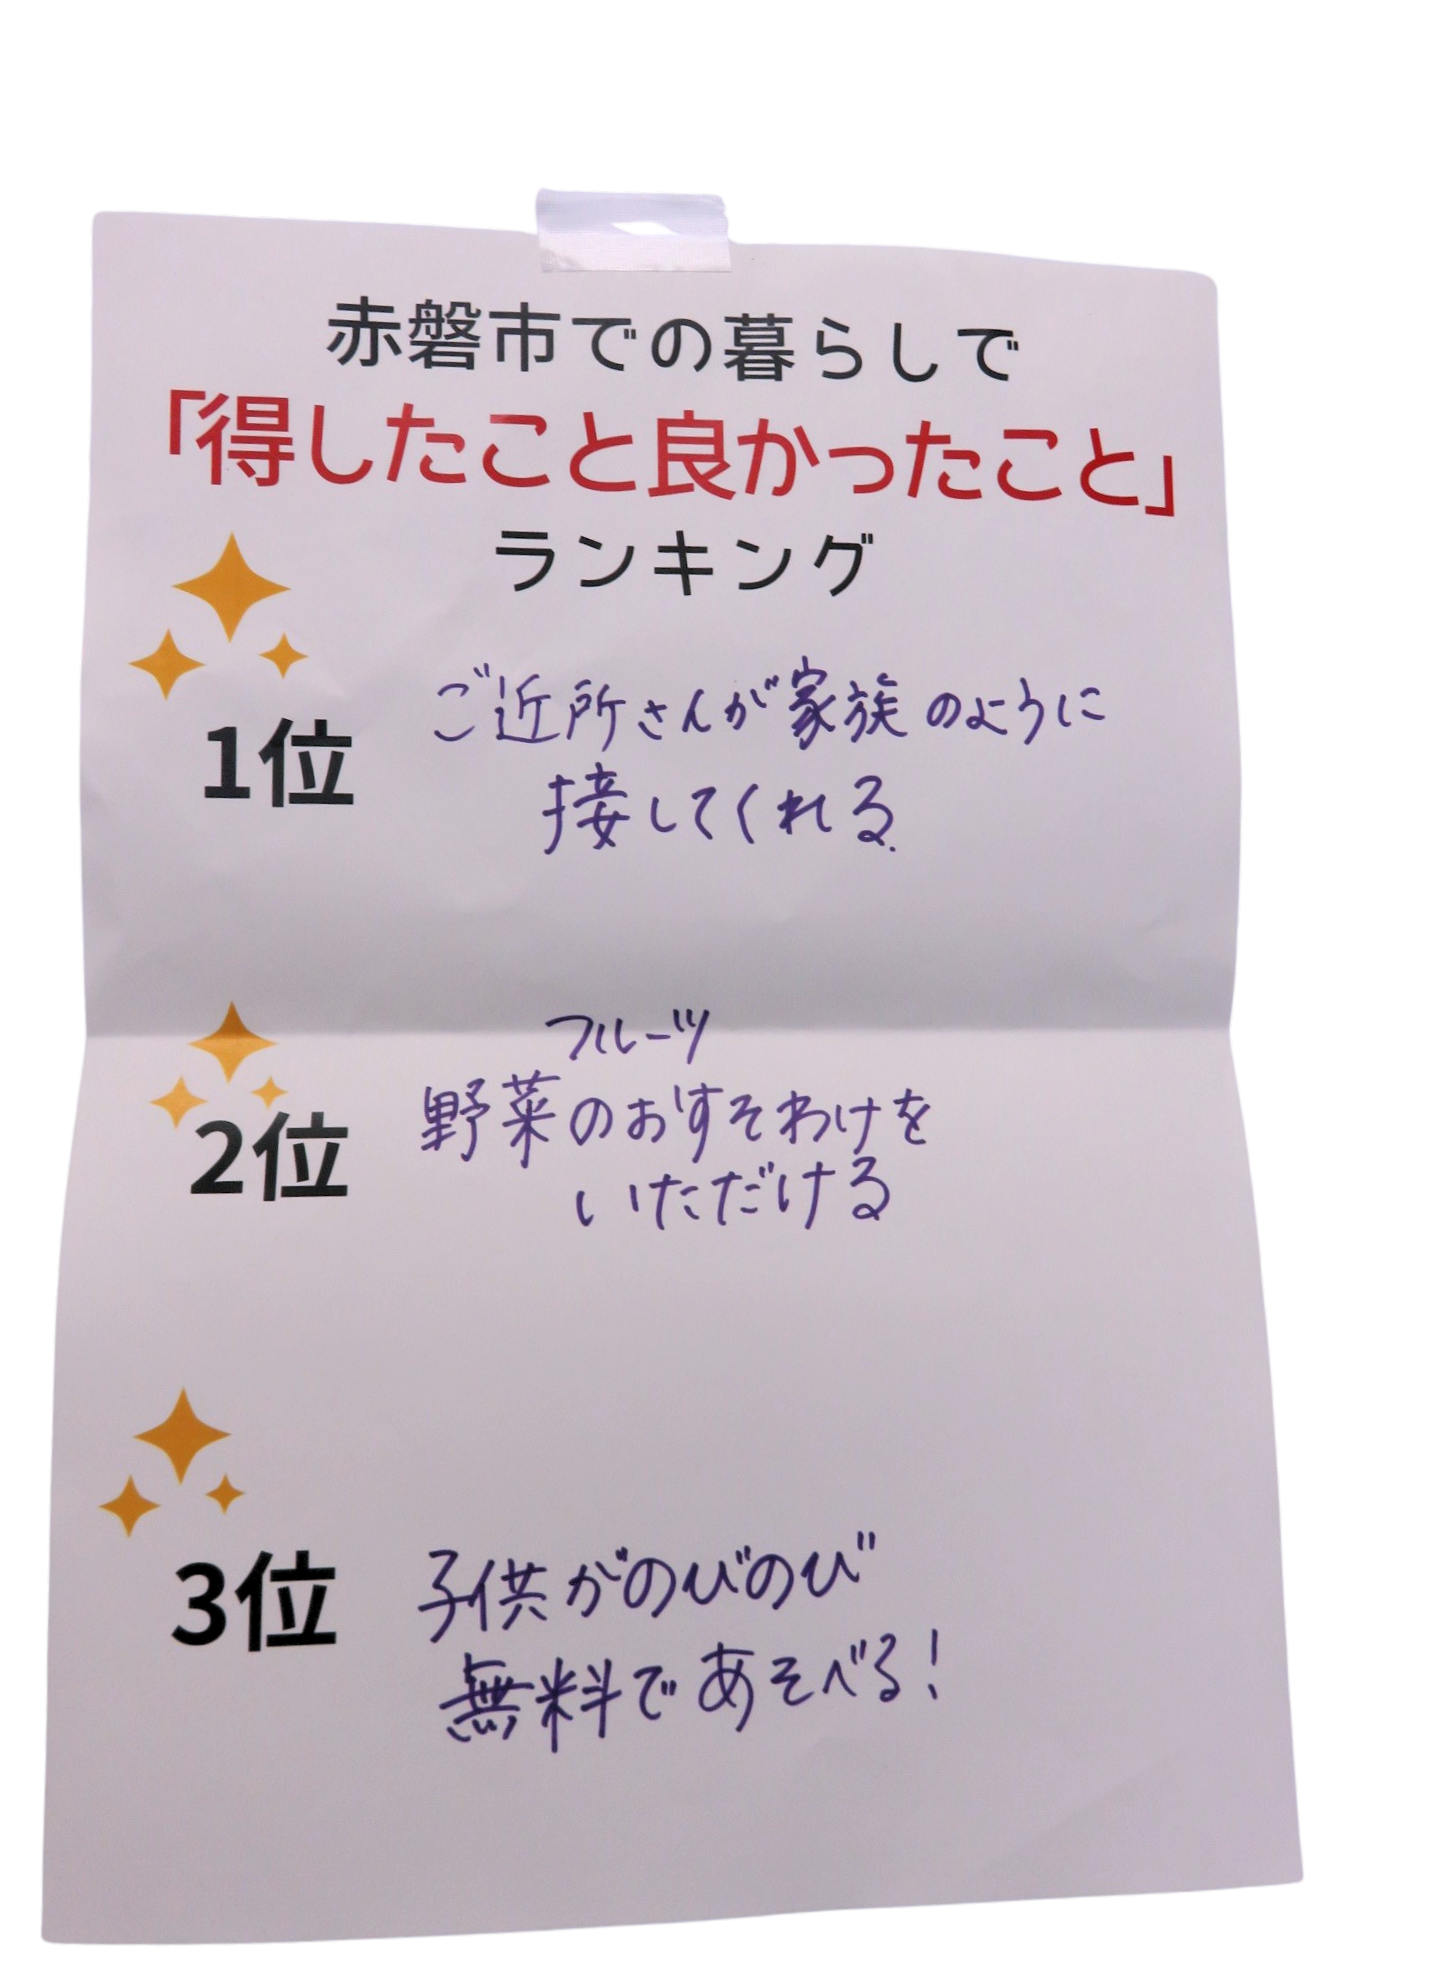 赤磐市での暮らしで
「得したこと良かったこと」
ランキング
1位
ご近所さんが家族のように
接してくれる.
2位
フルーツ
野菜のおすそわけを
いただける
3位
子供がのびのび
無料であそべる!